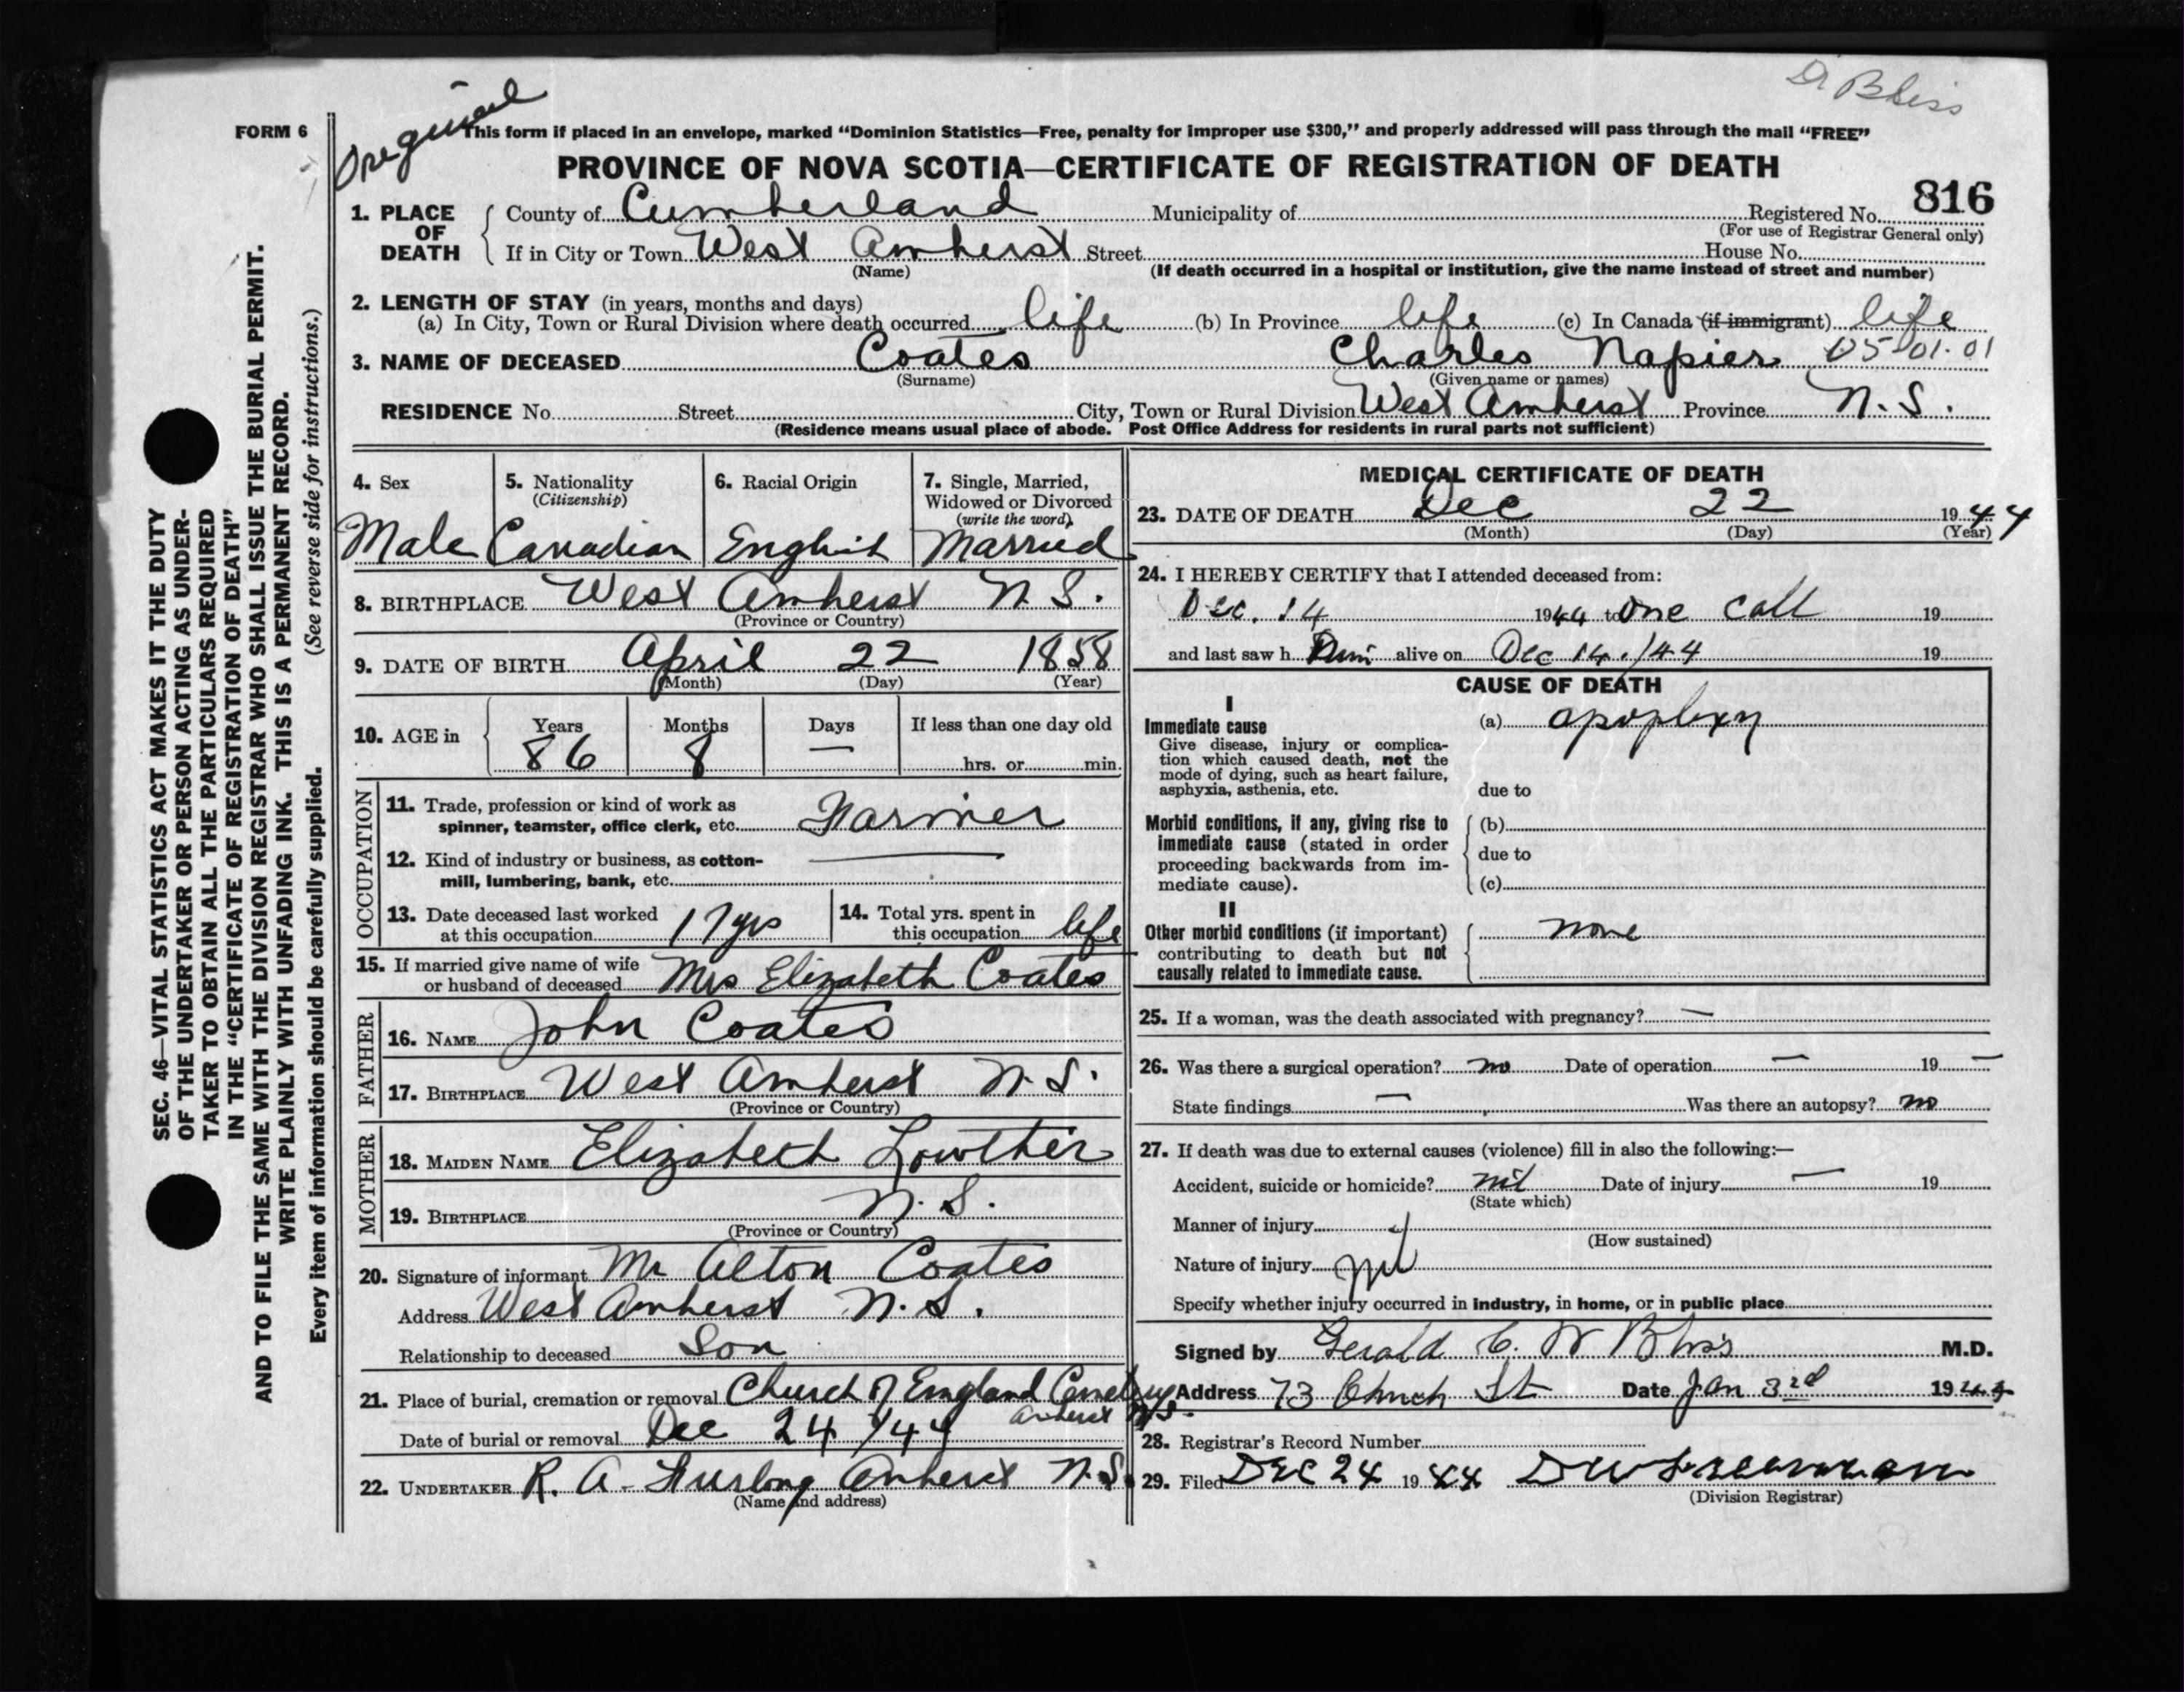 Dr Bliss
Original
FORM 6
This form if placed in an envelope, marked "Dominion Statistics—Free, penalty for improper use $300," and properly addressed will pass through the mail "FREE"
PROVINCE OF NOVA SCOTIA—CERTIFICATE OF REGISTRATION OF DEATH
816
1. PLACE OF DEATH County of Cumberland Municipality of Registered No.
(For use of Registrar General only)
If in City or Town West Amherst Street House No.
(Name) (If death occurred in a hospital or institution, give the name instead of street and number)
2. LENGTH OF STAY (in years, months and days)
(a) In City, Town or Rural Division where death occurred life (b) In Province life (c) In Canada (if immigrant) life
3. NAME OF DECEASED Coates Charles Napier 05-01-01
(Surname) (Given name or names)
RESIDENCE No. Street City, Town or Rural Division West Amherst Province N.S.
(Residence means usual place of abode. Post Office Address for residents in rural parts not sufficient)
SEC. 46—VITAL STATISTICS ACT MAKES IT THE DUTY
OF THE UNDERTAKER OR PERSON ACTING AS UNDER-
TAKER TO OBTAIN ALL THE PARTICULARS REQUIRED
IN THE "CERTIFICATE OF REGISTRATION OF DEATH"
AND TO FILE THE SAME WITH THE DIVISION REGISTRAR WHO SHALL ISSUE THE BURIAL PERMIT.
WRITE PLAINLY WITH UNFADING INK. THIS IS A PERMANENT RECORD.
Every item of information should be carefully supplied. (See reverse side for instructions.)
4. Sex 5. Nationality 6. Racial Origin 7. Single, Married,
(Citizenship) Widowed or Divorced
(write the word)
Male Canadian English Married
8. BIRTHPLACE West Amherst N.S.
(Province or Country)
9. DATE OF BIRTH April 22 1858
(Month) (Day) (Year)
10. AGE in Years Months Days If less than one day old
86 8 — hrs. or min.
OCCUPATION
11. Trade, profession or kind of work as
spinner, teamster, office clerk, etc. Farmer
12. Kind of industry or business, as cotton-
mill, lumbering, bank, etc. —
13. Date deceased last worked
at this occupation 17 yrs
14. Total yrs. spent in
this occupation life
15. If married give name of wife
or husband of deceased Mrs Elizabeth Coates
FATHER
16. NAME John Coates
17. BIRTHPLACE West Amherst N.S.
(Province or Country)
MOTHER
18. MAIDEN NAME Elizabeth Lowther
19. BIRTHPLACE N.S.
(Province or Country)
20. Signature of informant Mr Alton Coates
Address West Amherst N.S.
Relationship to deceased Son
21. Place of burial, cremation or removal Church of England Cemetery
Amherst N.S.
Date of burial or removal Dec 24/44
22. UNDERTAKER R. A. Furlong Amherst N.S.
(Name and address)
MEDICAL CERTIFICATE OF DEATH
23. DATE OF DEATH Dec 22 1944
(Month) (Day) (Year)
24. I HEREBY CERTIFY that I attended deceased from:
Dec. 14 1944 to One call 19
and last saw h him alive on Dec 14./44 19
CAUSE OF DEATH
I
Immediate cause (a) apoplexy
Give disease, injury or complica-
tion which caused death, not the
mode of dying, such as heart failure,
asphyxia, asthenia, etc. due to
Morbid conditions, if any, giving rise to (b)
immediate cause (stated in order
proceeding backwards from im- due to
mediate cause). (c)
II
Other morbid conditions (if important) none
contributing to death but not
causally related to immediate cause.
25. If a woman, was the death associated with pregnancy? —
26. Was there a surgical operation? no Date of operation — 19 —
State findings — Was there an autopsy? no
27. If death was due to external causes (violence) fill in also the following:—
Accident, suicide or homicide? nil Date of injury — 19
(State which)
Manner of injury
(How sustained)
Nature of injury nil
Specify whether injury occurred in industry, in home, or in public place
Signed by Gerald C. W Bliss M.D.
Address 73 Church St Date Jan 3rd 194
28. Registrar's Record Number
29. Filed DEC 24 1944
(Division Registrar)